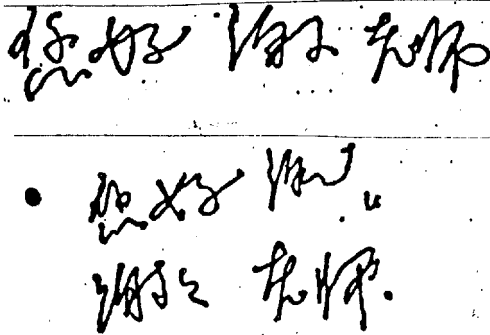 您好 谢谢 老师
您好
谢谢 老师.